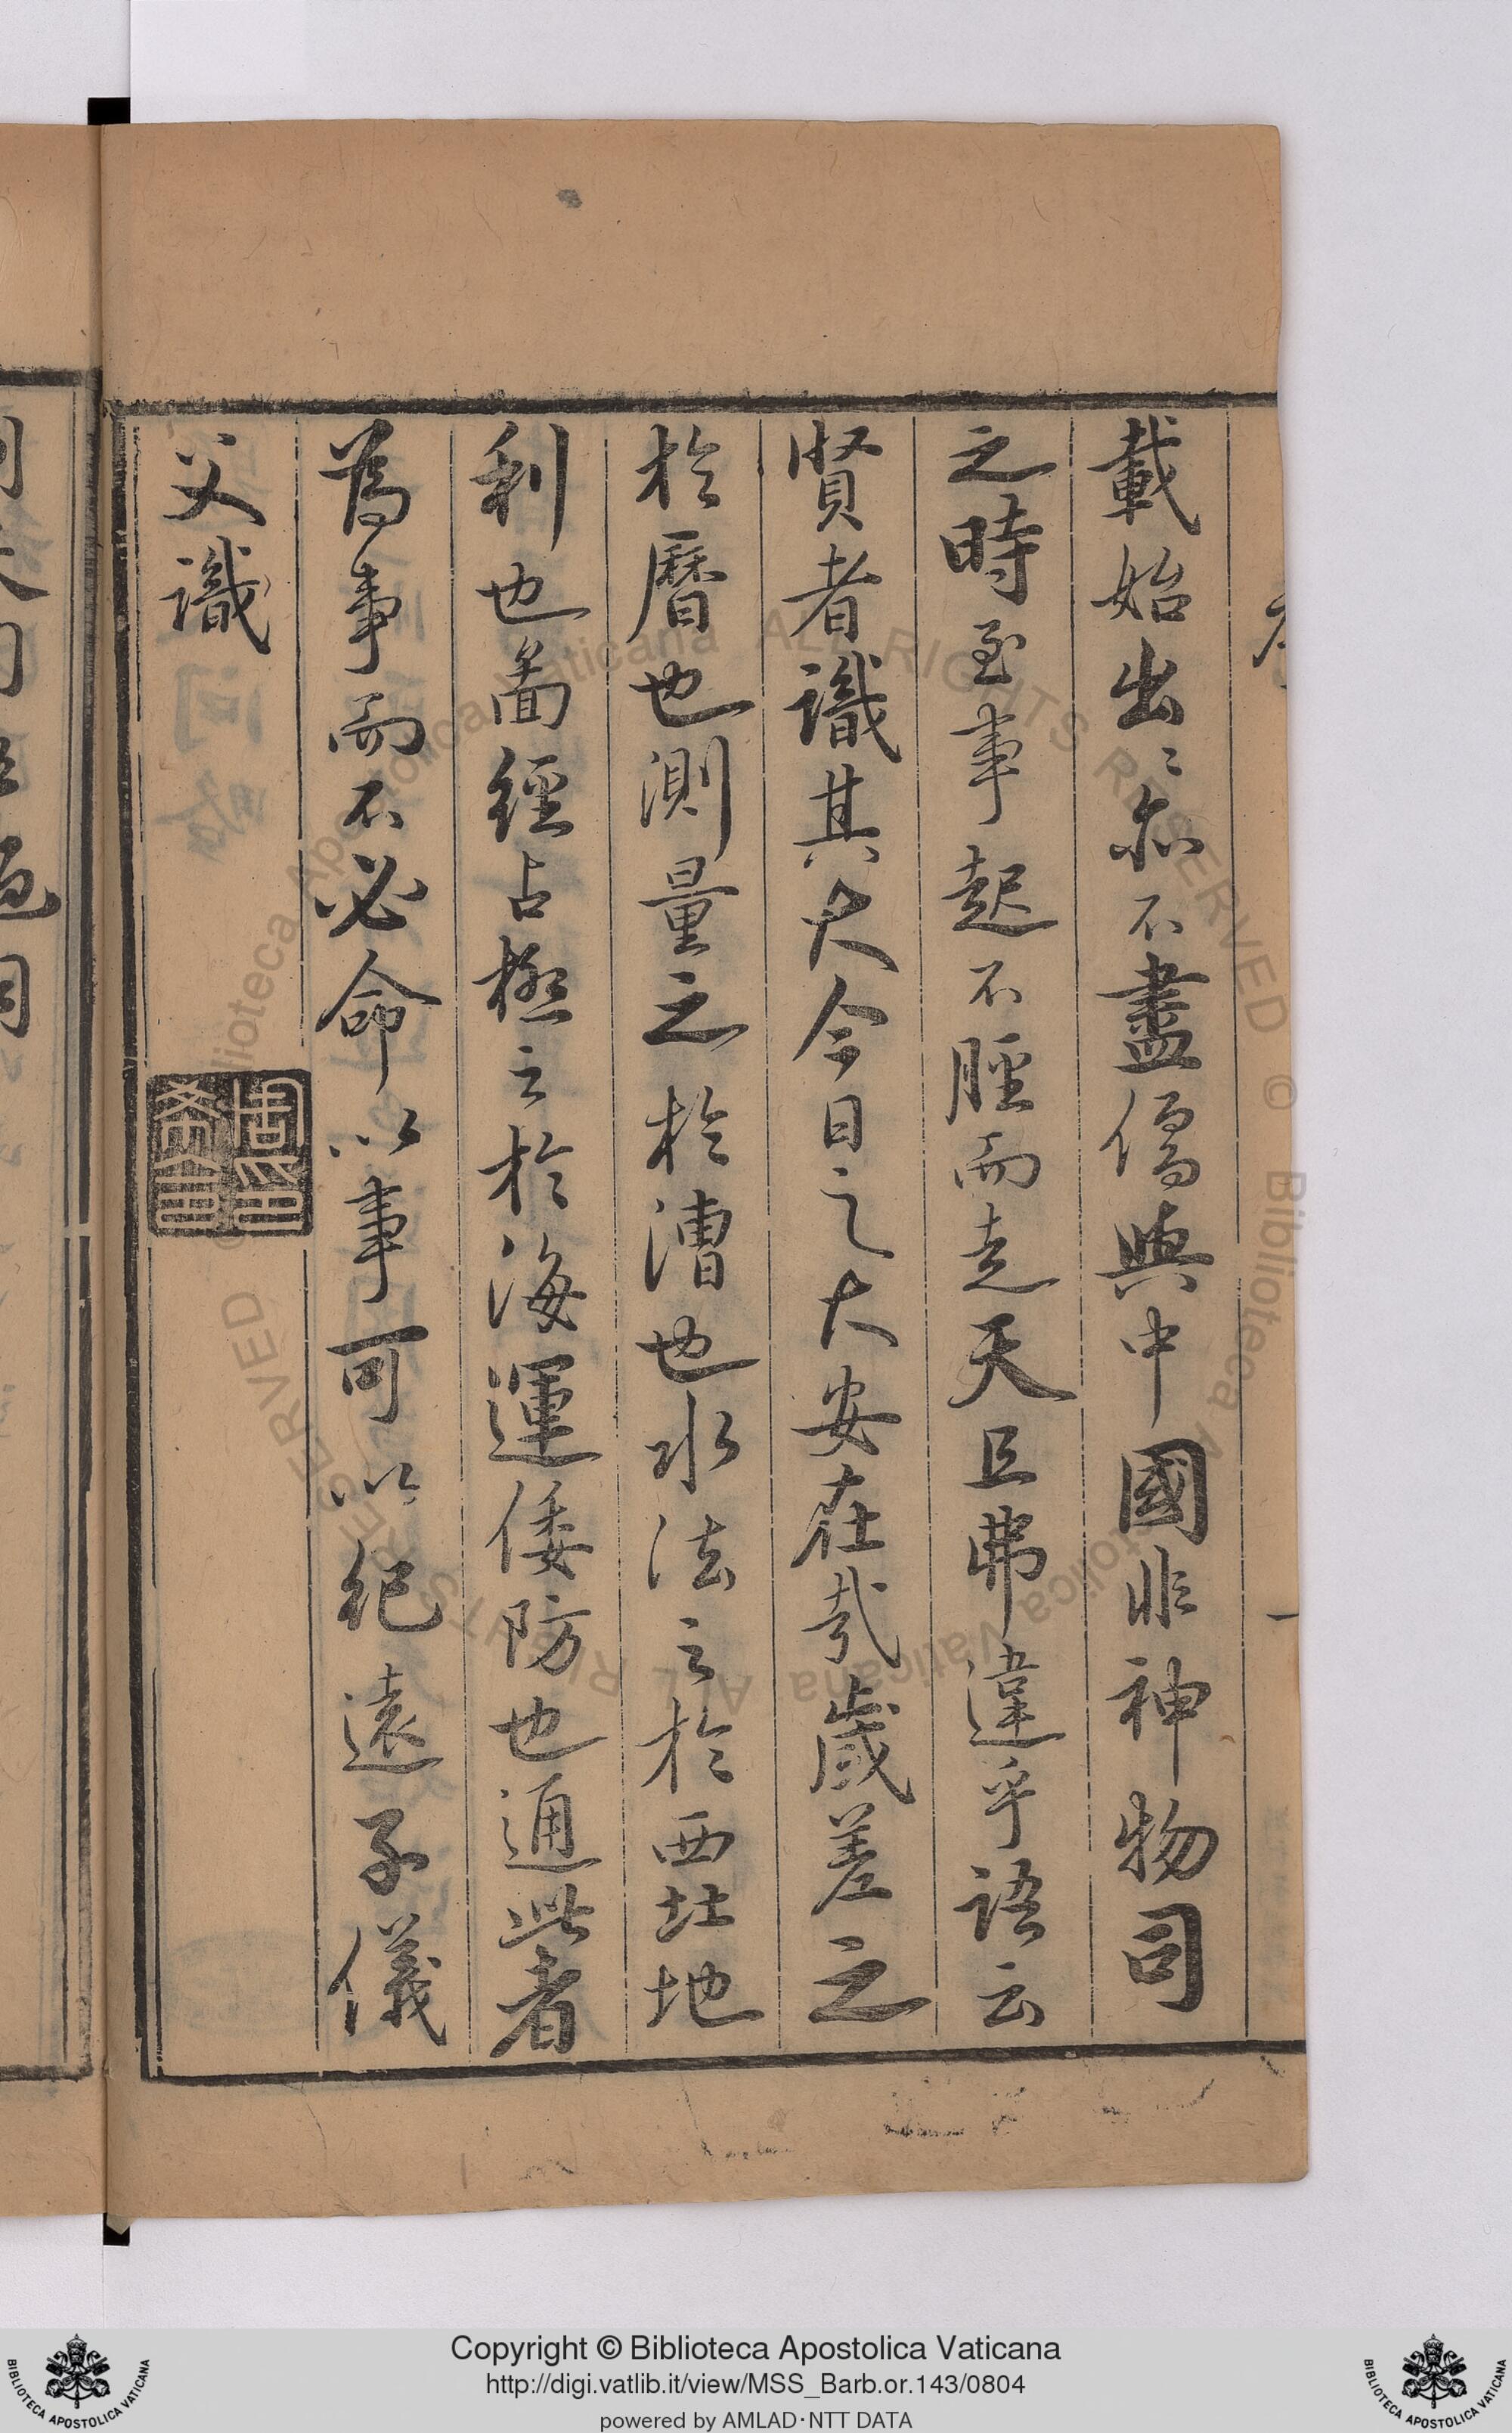 載始出〻亦不盡傳與中國非神物司
之時至事起不脛而走天且弗違乎語云
賢者識其大今日之大安在哉歲差之
於曆也測量之於漕也水法之於西北地
利也啚經占極之於海運倭防也通此者
為事而不必命以事可以紀遠子儀
父識
周希令印
Copyright © Biblioteca Apostolica Vaticana
http://digi.vatlib.it/view/MSS_Barb.or.143/0804
powered by AMLAD·NTT DATA
BIBLIOTECA APOSTOLICA VATICANA
BIBLIOTECA APOSTOLICA VATICANA